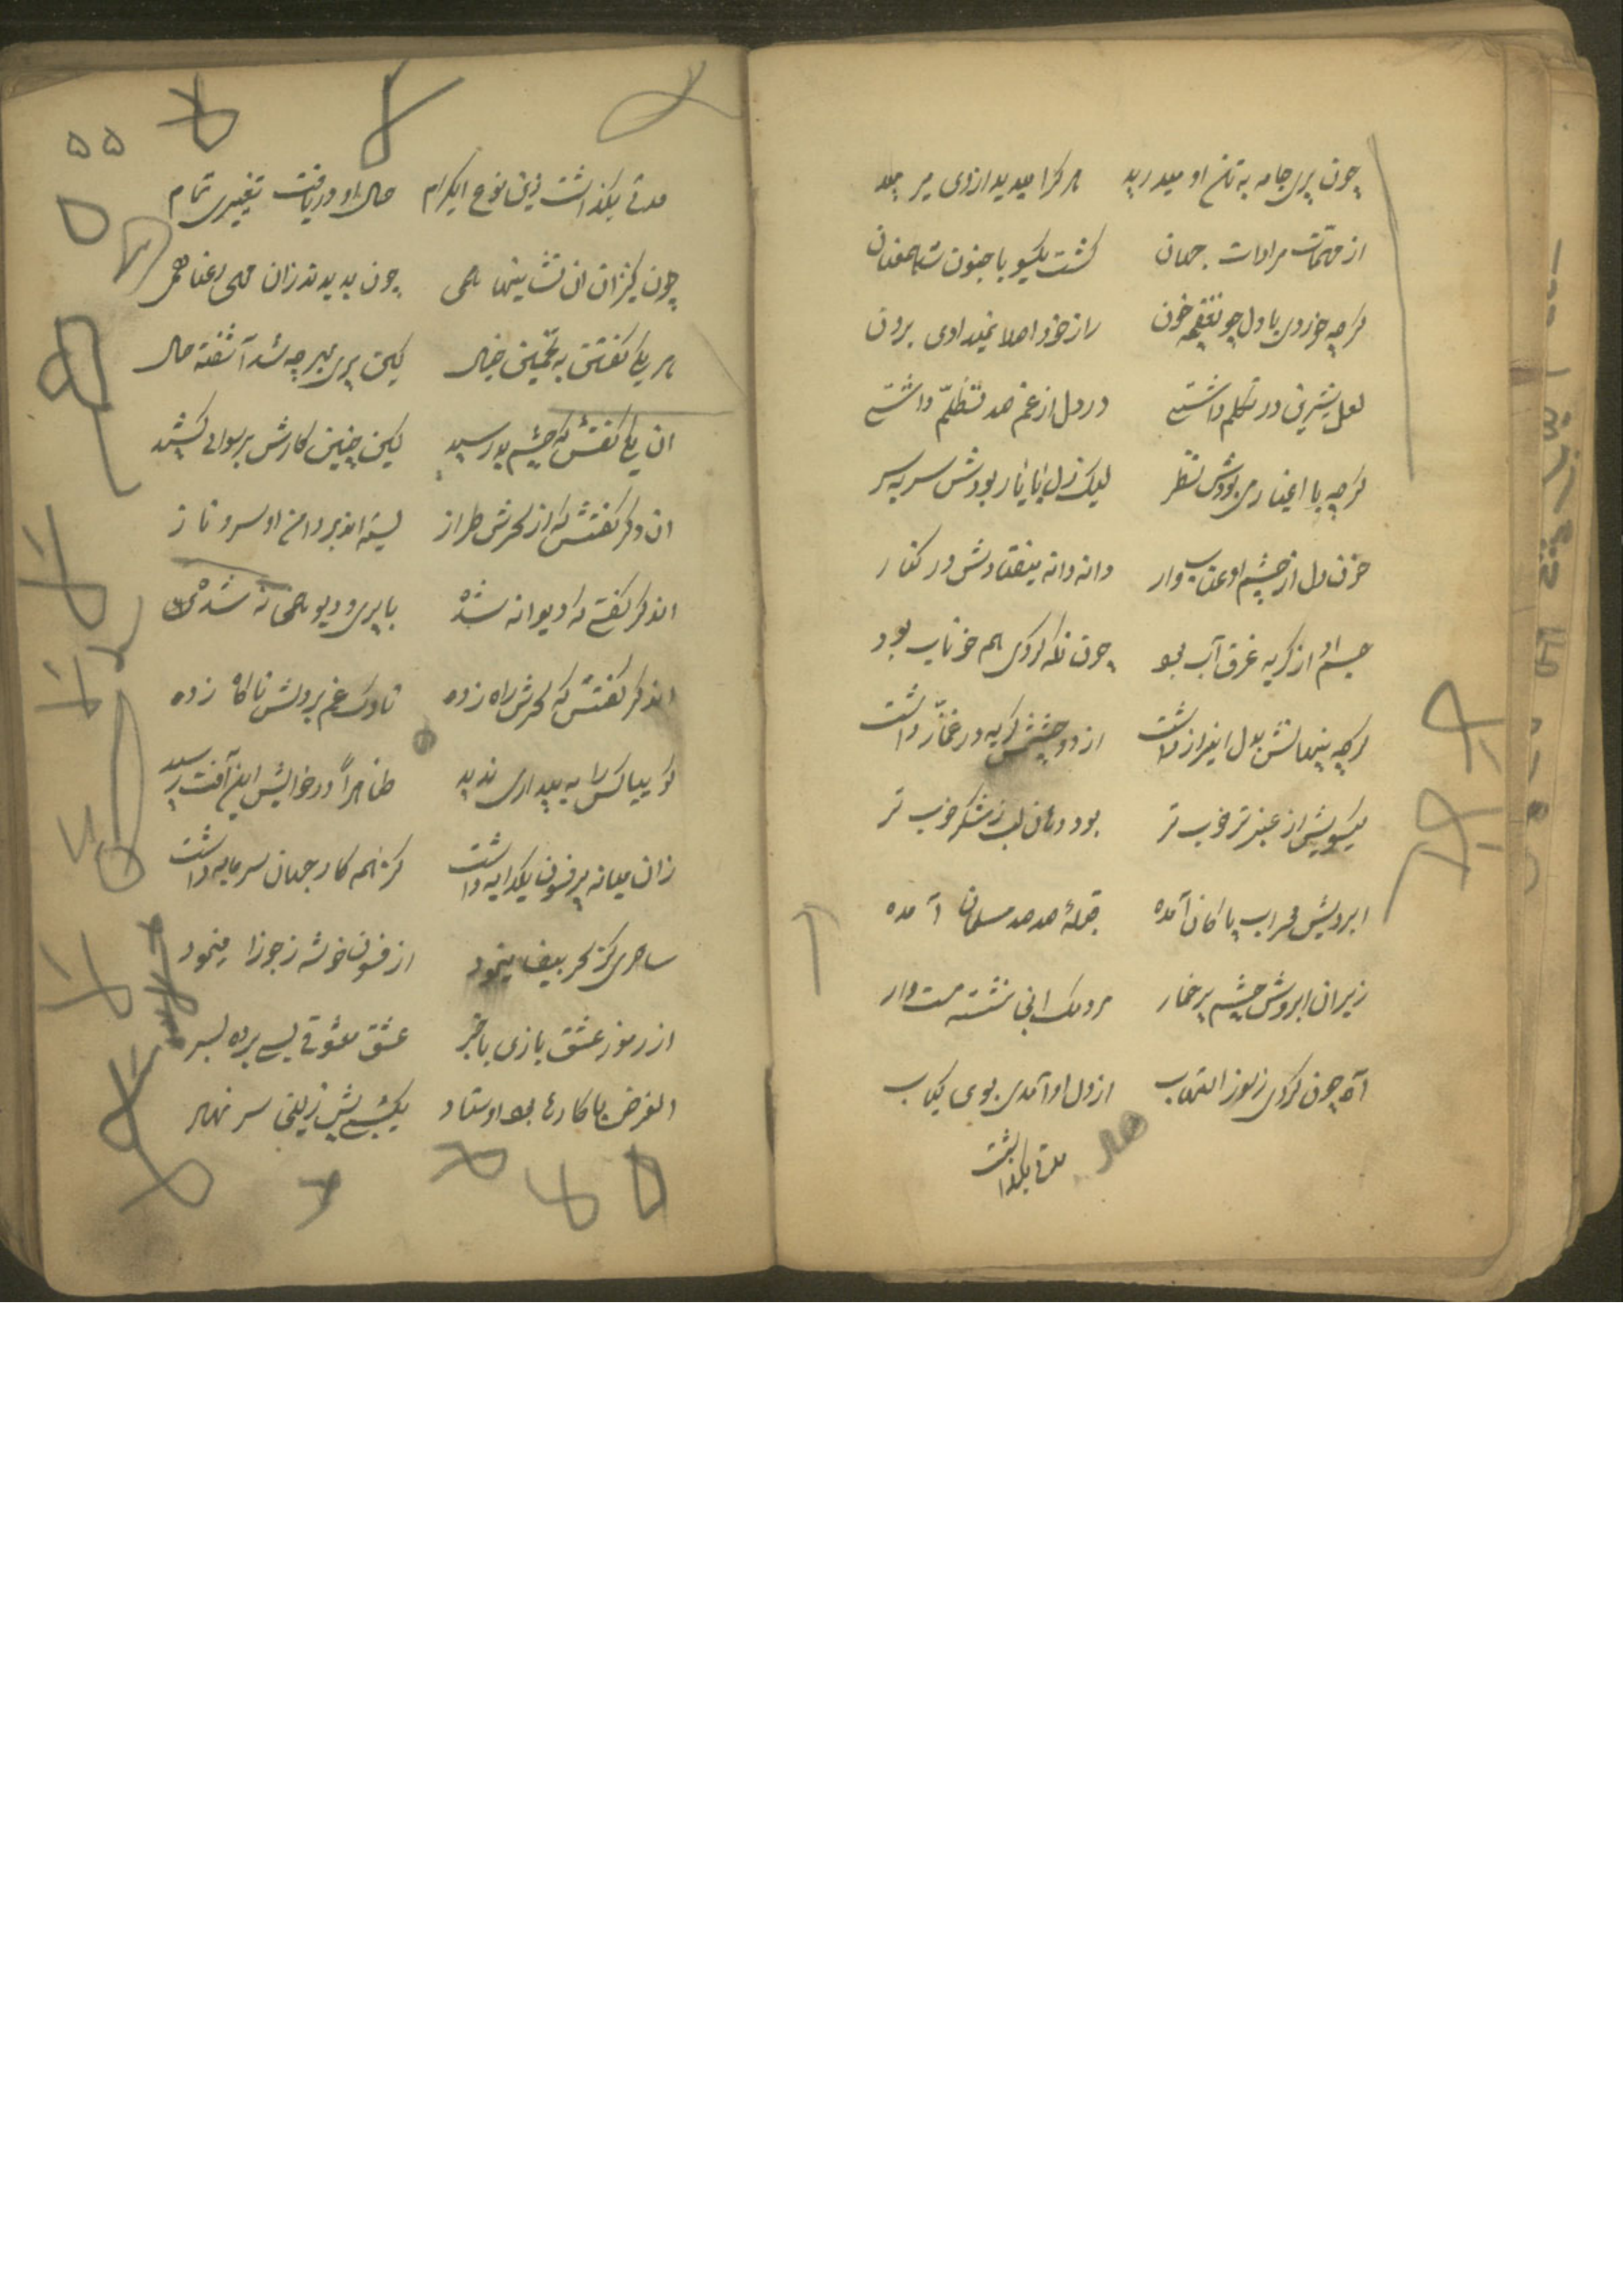 چون پری جامه به تن او میدرید هر کرا میدید از وی میرمید
از مهمات مرادات جهان گشت یکسو با جنون شد همعنان
گرچه خوردی با دل چو غنچه خون راز خود اصلا نمیدادی برون
لعل شیرین در تکلم داشتی در دل از غم صد تظلم داشتی
گرچه با اغیار می بودش نظر لیک دل با یار بودش سر به سر
خون دل از چشم او عناب وار دانه دانه میفتادش در کنار
جسم او از گریه غرق آب بود چون نگه کردی هم خوناب بود
گرچه پنهانش بدل این راز داشت از دو چشمش گریه در غماز داشت
گیسویش از عنبر تر خوب تر بود دهان لب ز شکر خوب تر
ابرویش محراب پاکان آمده قبلهٔ صد صد مسلمان آمده
زیر ان ابروش چشم پر خمار مردمک نشسته مست وار
آه چون کردی ز سوز التهاب از دل او آمدی بوی کباب
مدتی بگذشت
مدتی بگذاشت زین نوع ایکرام حال او دریافت تغییری تمام
چون کنیزان ان نشاینها همی چون بدیدند زان مهی رعنا همی
هر یکی گفتش به تخمین خیال کین پری بهر چه شد آشفته حال
ان یکی گفتش که چشم بد رسید کین چنین کارش برسوایی کشید
ان دگر گفتش که از سحرش طراز بسته اند بر دامن او سرو ناز
اندگر گفتی که دیوانه شده با پری و دیو همخانه شده
اندگر گفتش که سحرش راه زده ناوک غم بر دلش ناگاه زده
گوییا کس را به بیداری ندید ظاهراً در خوابش این آفت رسید
زان میانه پر فسون یکدایه داشت کز همه کار جهان سرمایه داشت
ساحری کز سحر بیضا مینمود از فسون خوشه ز جوزا مینمود
از رموز عشق بازی باخبر عشق معشوقی بسی برده بسر
الغرض با کارها بود اوستاد یکشبی پیش زلیخا سر نهاد